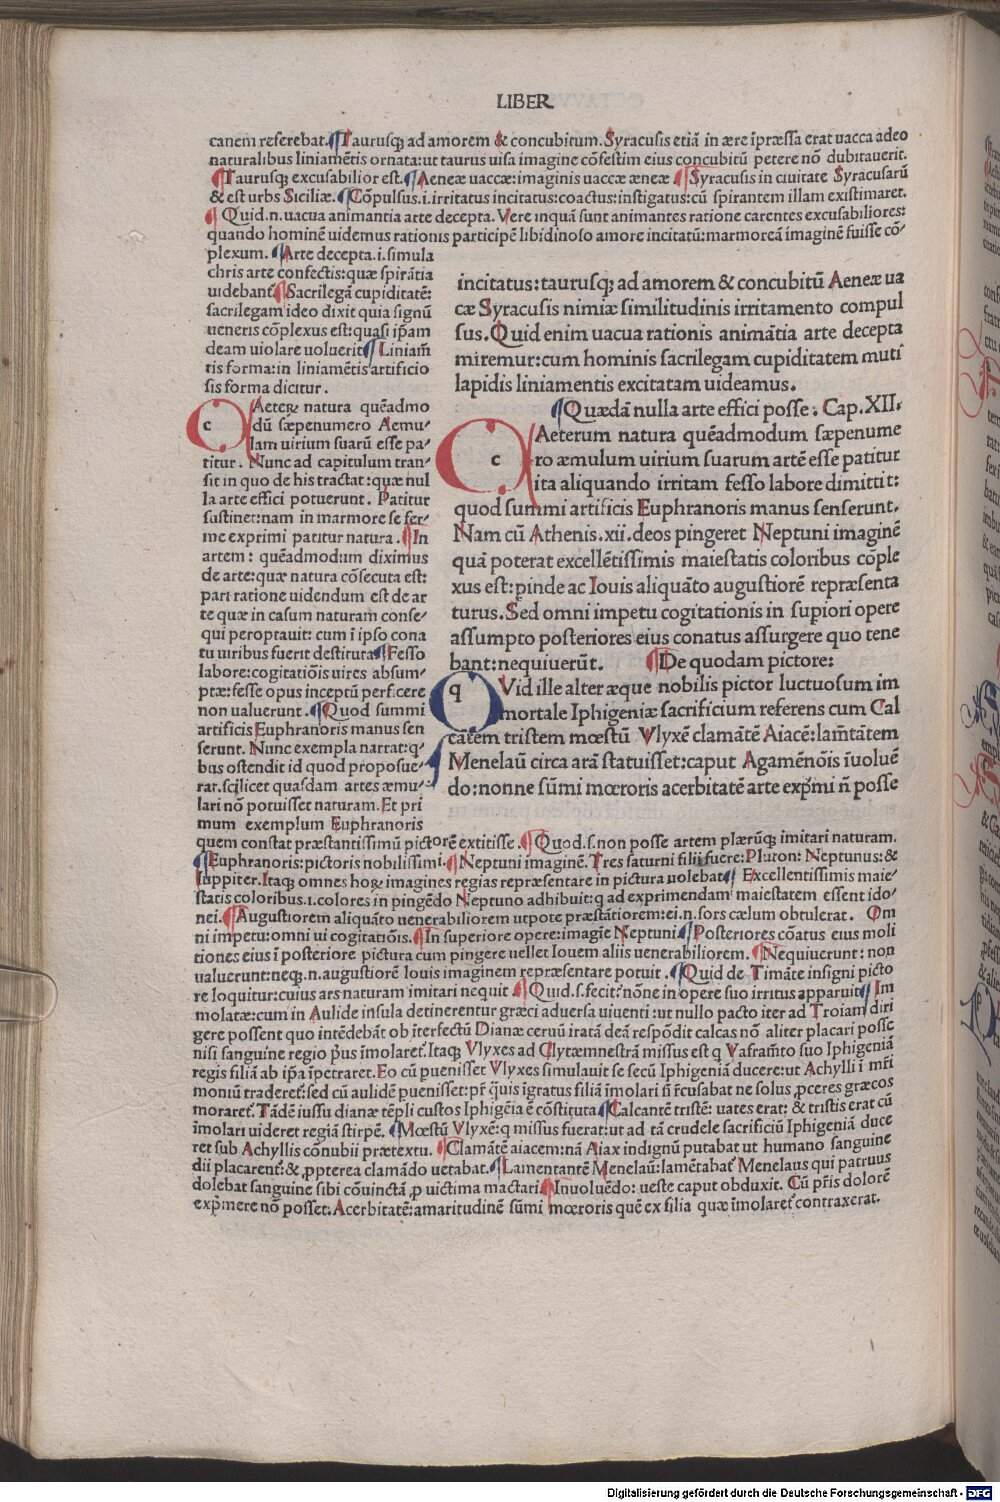 LIBER
canem referebat. ¶Taurusq; ad amorem & concubitum. Syracusis etiā in ære īpræssa erat uacca adeo
naturalibus liniamētis ornata: ut taurus uisa imagine cōfestim eius concubitū petere nō dubitauerit.
¶Taurusq; excusabilior est. ¶Aeneæ uaccæ: imaginis uaccæ æneæ ¶Syracusis in ciuitate Syracusarū
& est urbs Siciliæ. ¶Cōpulsus .i. irritatus incitatus: coactus: instigatus: cū spirantem illam existimaret.
¶Quid .n. uacua animantia arte decepta. Vere inquā sunt animantes ratione carentes excusabiliores:
quando hominē uidemus rationis participē libidinoso amore incitatū: marmoreā imaginē fuisse cō-
plexum. ¶Arte decepta .i. simula
chris arte confectis: quæ spirātia
uidebant. ¶Sacrilegā cupiditatē:
sacrilegam ideo dixit quia signū
ueneris cōplexus est: quasi ip̄am
deam uiolare uoluerit ¶Liniam̄
tis forma: in liniamētis artificio
sis forma dicitur.
CAeterꝝ natura quēadmo
dū sæpenumero Aemu-
lam uirium suarū esse pa-
titur. Nunc ad capitulum tran-
sit in quo de his tractat: quæ nul
la arte effici potuerunt. Patitur
sustinet: nam in marmore se fer-
me exprimi patitur natura. ¶In
artem: quēadmodum diximus
de arte: quæ natura cōsecuta est:
pari ratione uidendum est de ar
te quæ in casum naturam conse-
qui peroptauit: cum ī ipso cona
tu uiribus fuerit destituta ¶Fesso
labore: cogitatiōis uires absum-
ptæ: fesse opus inceptū perficere
non ualuerunt. ¶Quod summi
artificis Euphranoris manus sen
serunt. Nunc exempla narrat: q-
bus ostendit id quod proposue-
rat. scilicet quasdam artes æmu-
lari nō potuisset naturam. Et pri
mum exemplum Euphranoris
incitatus: taurusq; ad amorem & concubitū Aeneæ ua
cæ Syracusis nimiæ similitudinis irritamento compul
sus. Quid enim uacua rationis animātia arte decepta
miremur: cum hominis sacrilegam cupiditatem muti
lapidis liniamentis excitatam uideamus.
¶Quædā nulla arte effici posse. Cap. XII.
CAeterum natura quēadmodum sæpenume
ro æmulum uirium suarum artē esse patitur
ita aliquando irritam fesso labore dimittit:
quod summi artificis Euphranoris manus senserunt.
Nam cū Athenis .xii. deos pingeret Neptuni imaginē
quā poterat excellētissimis maiestatis coloribus cōple
xus est: pinde ac Iouis aliquāto augustiorē repræsenta
turus. Sed omni impetu cogitationis in supiori opere
assumpto posteriores eius conatus assurgere quo tene
bant: nequiuerūt. ¶De quodam pictore:
QVid ille alter æque nobilis pictor luctuosum im
mortale Iphigeniæ sacrificium referens cum Cal
cātem tristem mœstū Vlyxē clamātē Aiacē: lam̄tātem
Menelaū circa arā statuisset: caput Agamēnōis īuolue
do: nonne sūmi mœroris acerbitatē arte exp̄mi n̄ posse
quem constat præstantissimū pictorē extitisse. ¶Quod .s. non posse artem plærūq; imitari naturam.
¶Euphranoris: pictoris nobilissimi. ¶Neptuni imaginē. Tres saturni filii fuere: Pluton: Neptunus: &
Iuppiter. Itaq; omnes hoꝝ imagines regias repræsentare in pictura uolebat ¶Excellentissimis maie-
statis coloribus .i. colores in pingēdo Neptuno adhibuit: q ad exprimendam maiestatem essent ido-
nei. ¶Augustiorem aliquāto uenerabiliorem utpote præstātiorem: ei .n. sors cælum obtulerat. Om
ni impetu: omni ui cogitatiōis. ¶In superiore opere: imagīe Neptuni ¶Posteriores cōatus eius moli
tiones eius ī posteriore pictura cum pingere uellet Iouem aliis uenerabiliorem. ¶Nequiuerunt: non
ualuerunt: neq; .n. augustiorē Iouis imaginem repræsentare potuit. ¶Quid de Timāte insigni picto
re loquitur: cuius ars naturam imitari nequit ¶Quid .s. fecit? nōne in opere suo irritus apparuit ¶Im
molatæ: cum in Aulide insula detinerentur græci aduersa uiuenti: ut nullo pacto iter ad Troiam diri
gere possent quo intēdebāt ob īterfectū Dianæ ceruū iratā deā respōdit calcas nō aliter placari posse
nisi sanguine regio p̄us īmolaret. Itaq; Vlyxes ad Clytæmnestrā missus est q Vaframēto suo Iphigeniā
regis filiā ab ip̄a īpetraret. Eo cū puenisset Vlyxes simulauit se secū Iphigeniā ducere: ut Achylli ī mr̄i
moniū traderet: sed cū aulidē puenisset: pr̄ q̄uis īgratus filiā īmolari n̄ r̄cusabat ne solus ꝓceres græcos
moraret. Tādē iussu dianæ tēpli custos Iphigēia ē cōstituta ¶Calcantē tristē: uates erat: & tristis erat cū
īmolari uideret regiā stirpē. ¶Mœstū Vlyxē: q missus fuerat: ut ad tā crudele sacrificiū Iphigeniā duce
ret sub Achyllis cōnubii prætextu. ¶Clamātē aiacem: nā Aiax indignū putabat ut humano sanguine
dii placarent: & ꝓpterea clamādo uetabat. ¶Lamentantē Menelaū: lamētabat Menelaus qui patruus
dolebat sanguine sibi cōuinctā ꝓ uictima mactari ¶Inuoluēdo: ueste caput obduxit. Cū p̄ris dolorē
exp̄mere nō posset. Acerbitatē: amaritudinē sūmi mœroris quē ex filia quæ īmolaret contraxerat.
Digitalisierung gefördert durch die Deutsche Forschungsgemeinschaft - DFG